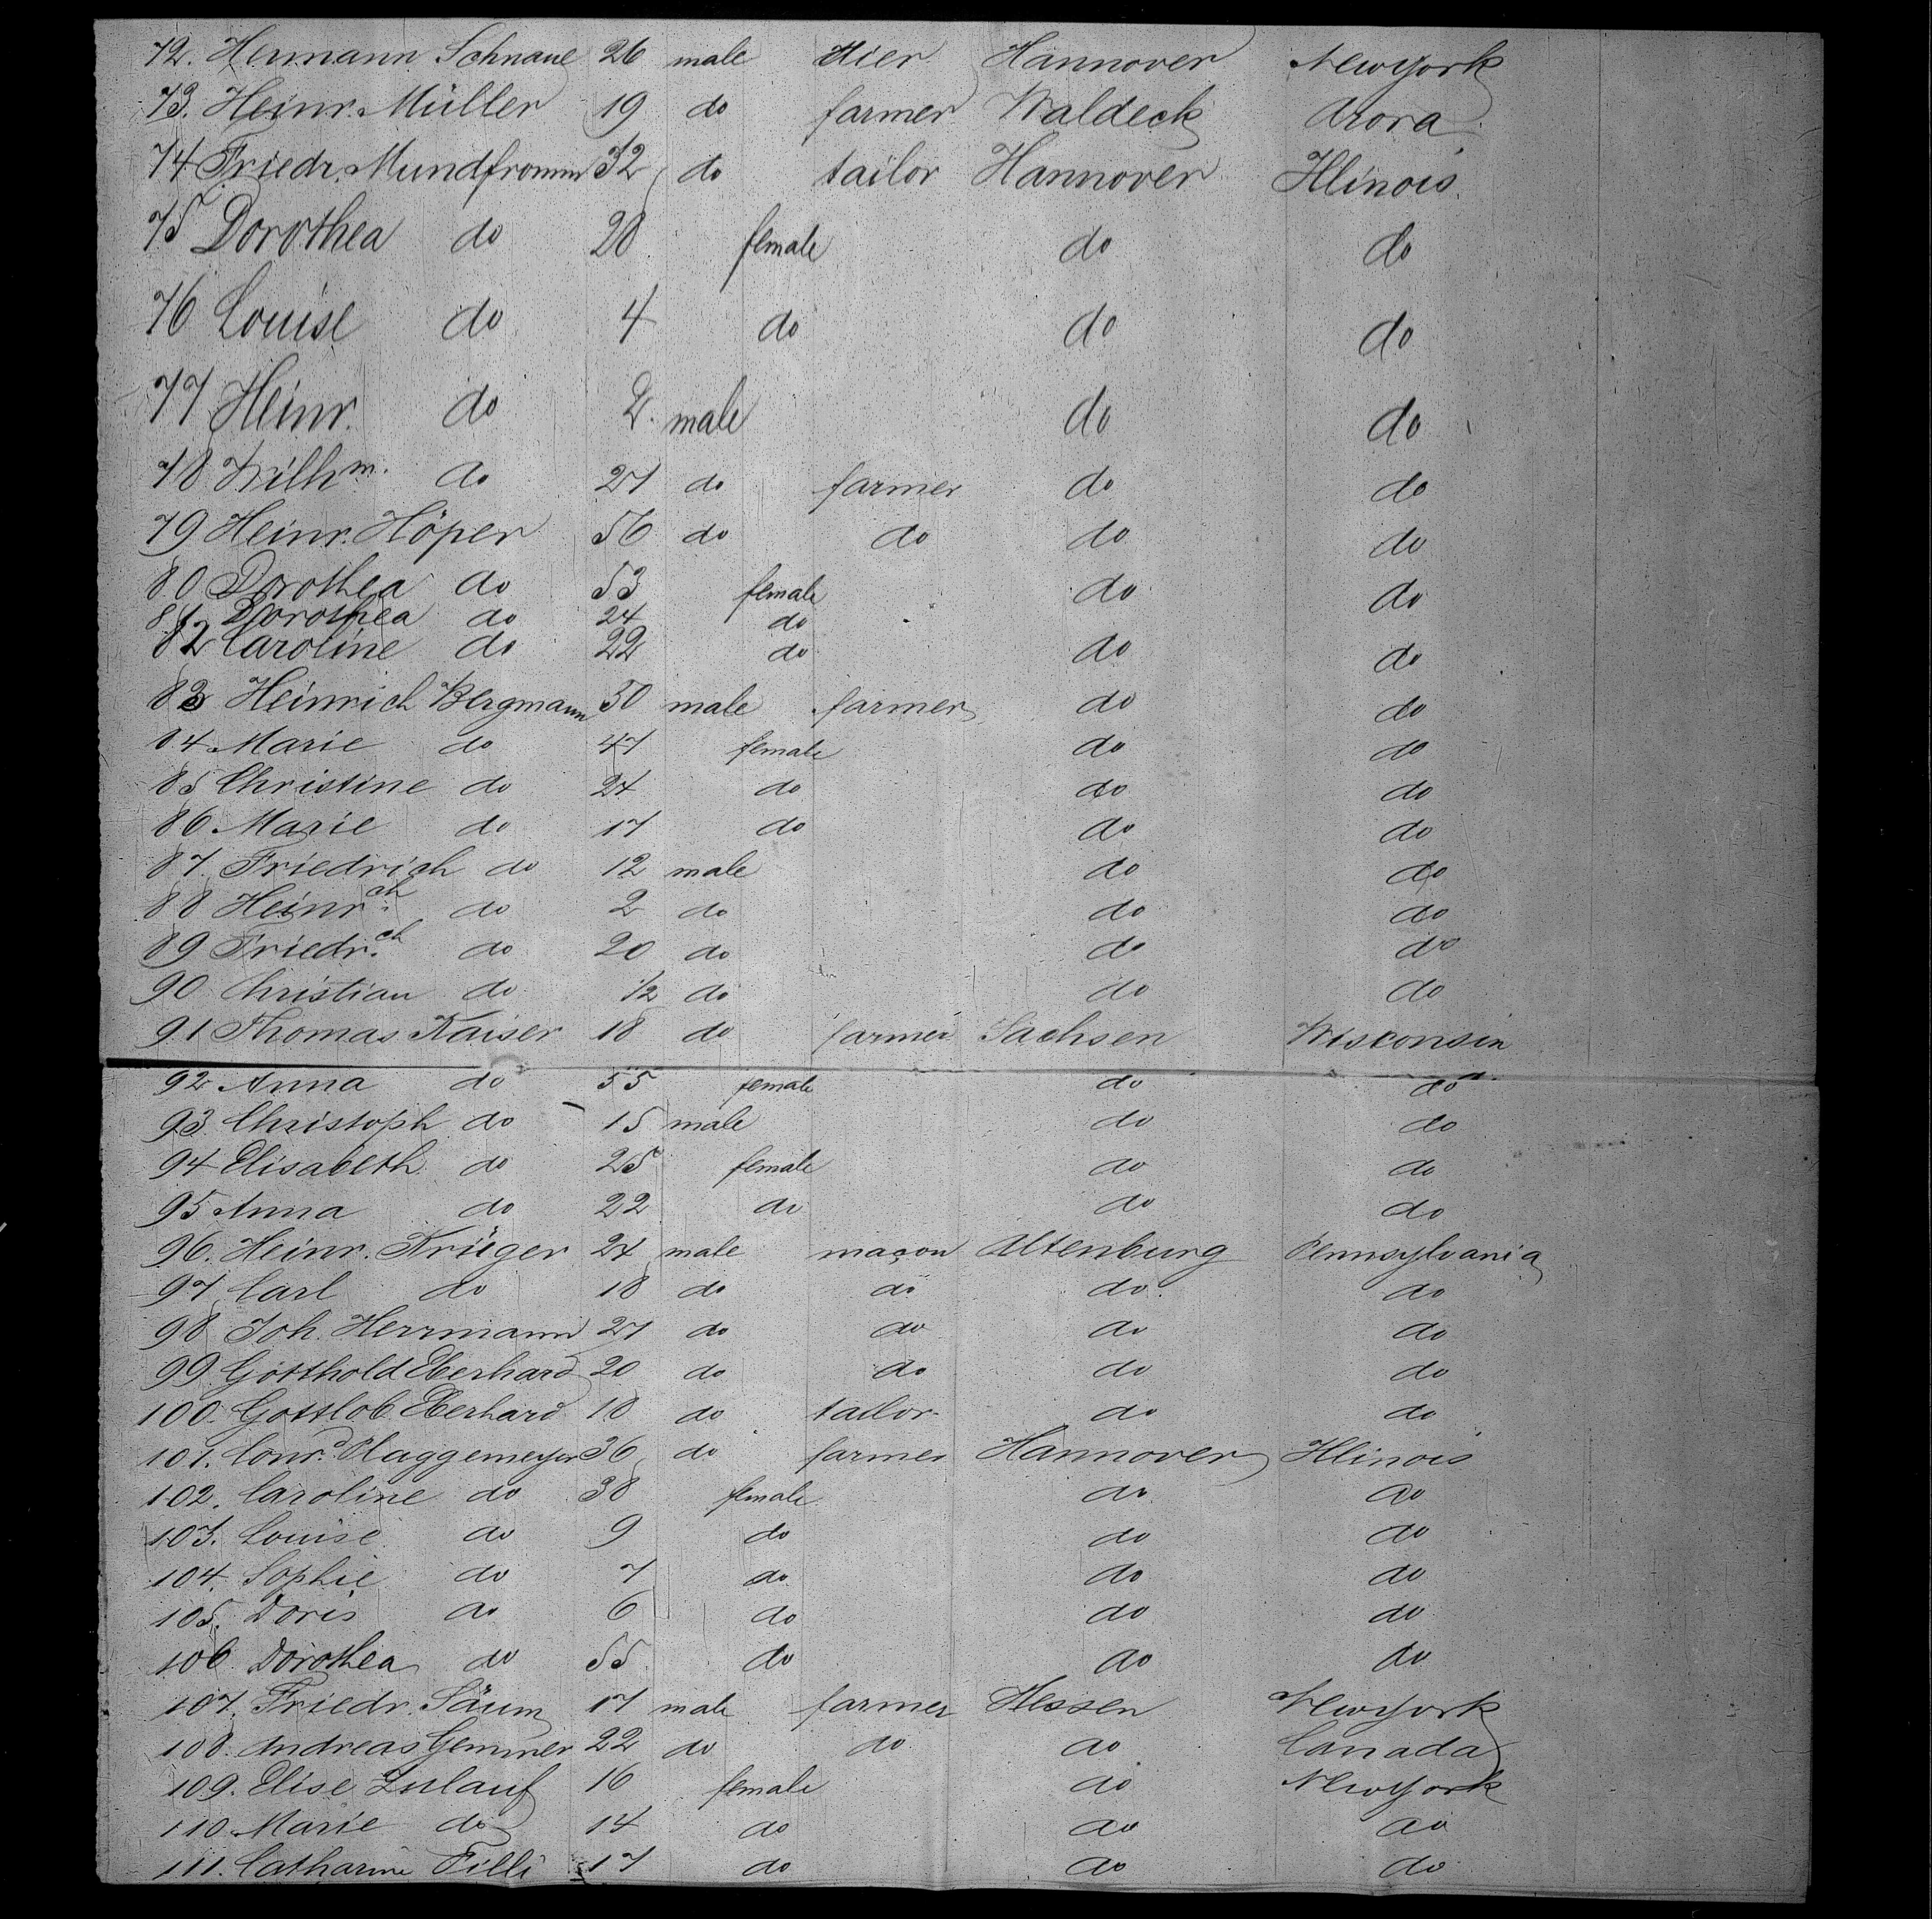 72. Hermann Schnaue 26 male Hier Hannover Newyork
73. Heinr. Müller 19 do farmer Waldeck Arora
74 Friedr. Mundfromm 32 do tailor Hannover Illinois
75 Dorothea do 28 female do do
76 Louise do 4 do do do
77 Heinr. do 2 male do do
78 Wilhm. do 27 do farmer do do
79 Heinr. Höper 56 do do do do
80 Dorothea do 53 female do do
81 Dorothea do 24 do
82 Caroline do 22 do do do
83 Heinrich Bergmann 50 male farmer do do
84 Marie do 47 female do do
85 Christine do 24 do do do
86 Marie do 17 do do do
87. Friedrich do 12 male do do
88 Heinrch. do 2 do do do
89 Friedr.ch do 20 do do do
90 Christian do 1/2 do do do
91 Thomas Kaiser 18 do farmer Sachsen Wisconsin
92 Anna do 55 female do do
93. Christoph do 15 male do do
94 Elisabeth do 25 female do do
95 Anna do 22 do do do
96. Heinr. Krüger 24 male maçon Altenburg Pennsylvania
97 Carl do 18 do do do do
98 Joh. Herrmann 27 do do do do
99 Gotthold Eberhard 20 do do do do
100. Gottlob Eberhard 18 do tailor do do
101. Conrd. Plaggemeyer 36 do farmer Hannover Illinois
102. Caroline do 38 female do do
103. Louise do 9 do do do
104. Sophie do 7 do do do
105. Doris do 6 do do do
106 Dorothea do 55 do do do
107. Friedr. Säum 17 male farmer Hessen Newyork
108. Andreas Gemmer 22 do do do Canada
109. Elise Zulauf 16 female do Newyork
110. Marie do 14 do do do
111. Catharine Filli 17 do do do